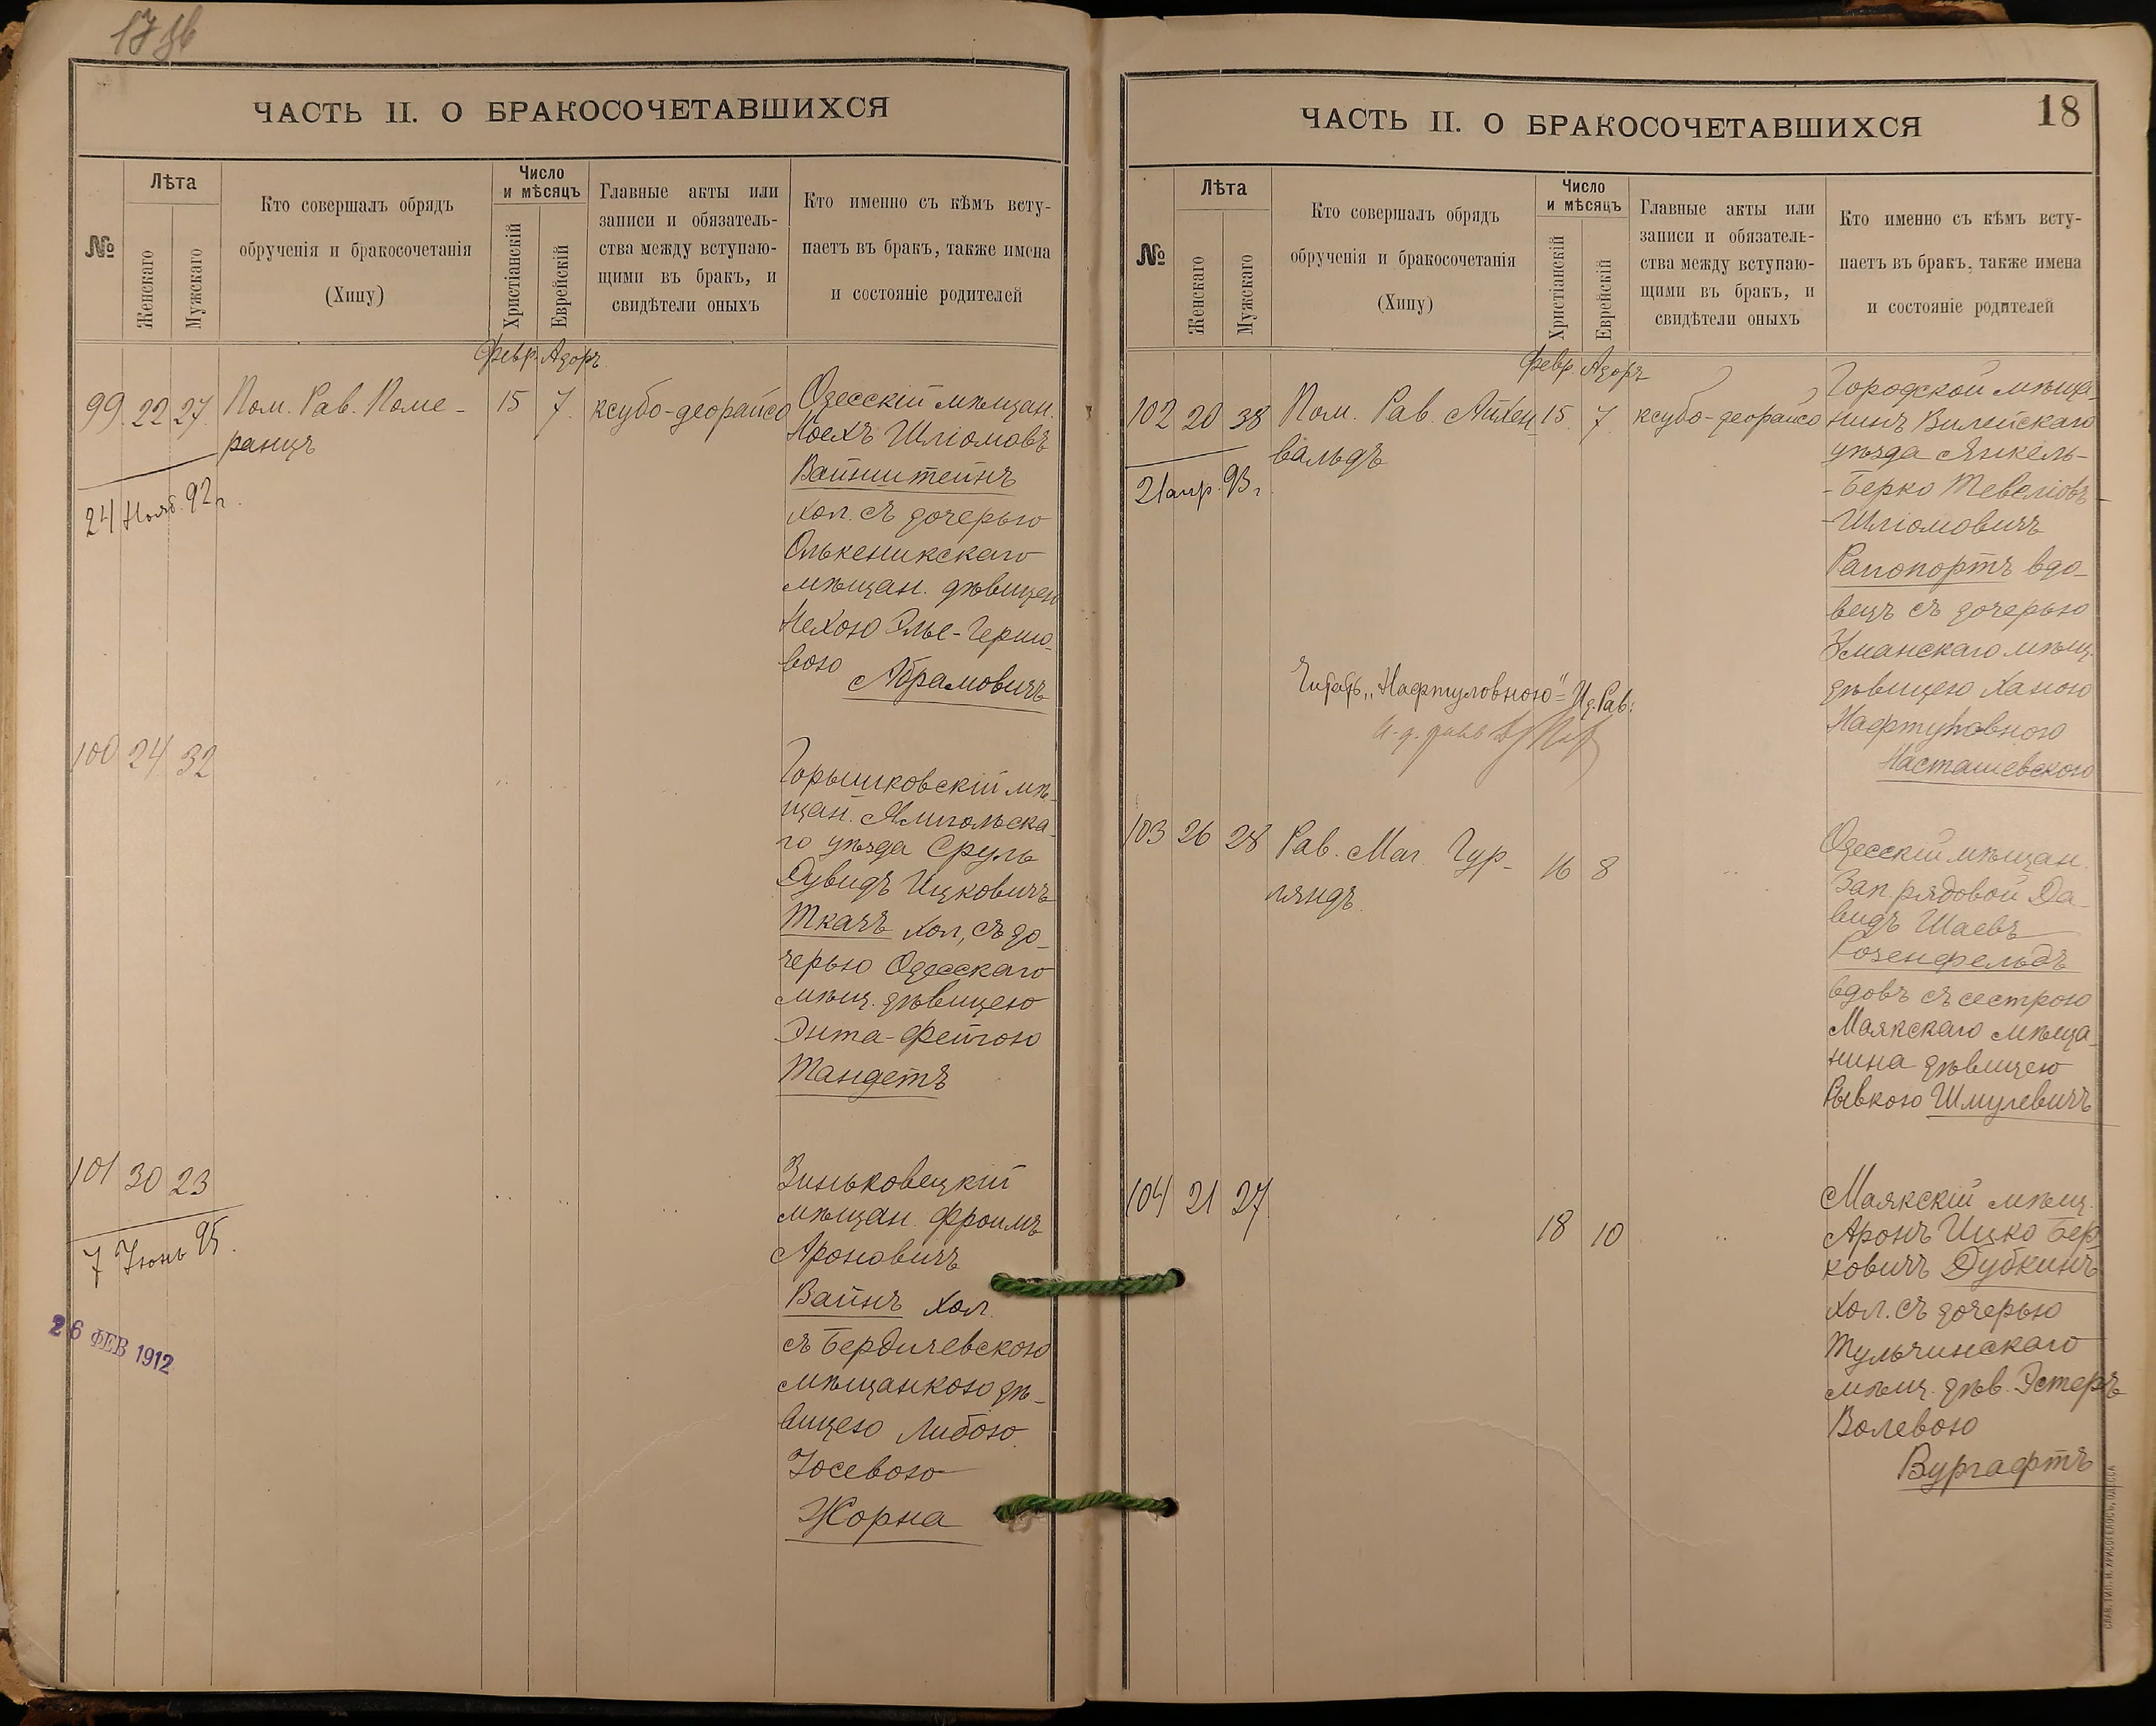 ЧАСТЬ II. О БРАКОСОЧЕТАВШИХСЯ
№
Лѣта
Женскаго
Мужскаго
Кто совершалъ обрядъ
обрученія и бракосочетанія
(Хипу)
Число
и мѣсяцъ
Христіанскій
Еврейскій
Главные акты или
записи и обязатель-
ства между вступаю-
щими въ бракъ, и
свидѣтели оныхъ
Кто именно съ кѣмъ всту-
паетъ въ бракъ, также имена
и состояніе родителей
Февр. Адоръ
99. 22 27.
Пом. Рав. Поме-
ранцъ
15 7.
ксубо-деорайсо
Одесскій мѣщан.
Шліомовъ
Вайнштейнъ
хол. съ дочерью
Олькеникскаго
мѣщан. дѣвицею
Нехою Элье-Гершо-
вою
Абрамовичъ
24 Нояб. 92 г.
100 24 32
Горышковскій мѣ-
щан. Ямпольска-
го уѣзда Сруль
Дувидъ Ицковичъ
Ткачъ хол, съ до-
черью Одесскаго
мѣщ. дѣвицею
Энта-Фейгою
Тандетъ
101 30 23
7 Іюнь 95.
26 ФЕВ 1912
Зиньковецкій
мѣщан. Фроимъ
Ароновичъ
Вайнъ хол.
съ Бердичевскою
мѣщанкою дѣ-
вицею Либою
Іосевою
Жорна
ЧАСТЬ II. О БРАКОСОЧЕТАВШИХСЯ
18
№
Лѣта
Женскаго
Мужскаго
Кто совершалъ обрядъ
обрученія и бракосочетанія
(Хипу)
Число
и мѣсяцъ
Христіанскій
Еврейскій
Главные акты или
записи и обязатель-
ства между вступаю-
щими въ бракъ, и
свидѣтели оныхъ
Кто именно съ кѣмъ всту-
паетъ въ бракъ, также имена
и состояніе родителей
Февр. Адоръ
102 20 38
Пом. Рав. Айхен-
вальдъ
15. 7.
ксубо-деорайсо
21 апр. 93 г.
Городской мѣща-
нинъ Вилейскаго
уѣзда Янкель-
-Берко Тевеліовъ-
-Шліомовичъ
Рапопортъ вдо-
вецъ съ дочерью
Уманскаго мѣщ.
дѣвицею Ханою
Нафтуловною
Насташевскою
Читать „Нафтуловною"
103 26 28
Рав. Маг. Гур-
ляндъ
16 8
Одесскій мѣщан.
Зап. рядовой Да-
видъ Шаевъ
Розенфельдъ
вдовъ съ сестрою
Маякскаго мѣща-
нина дѣвицею
Рывкою Шмулевичъ
104 21 27
18 10
Маякскій мѣщ.
Аронъ Ицко Бер-
ковичъ Дубкинъ
хол. съ дочерью
Тульчинскаго
мѣщ. дѣв. Эстеръ
Волевою
Вургафтъ